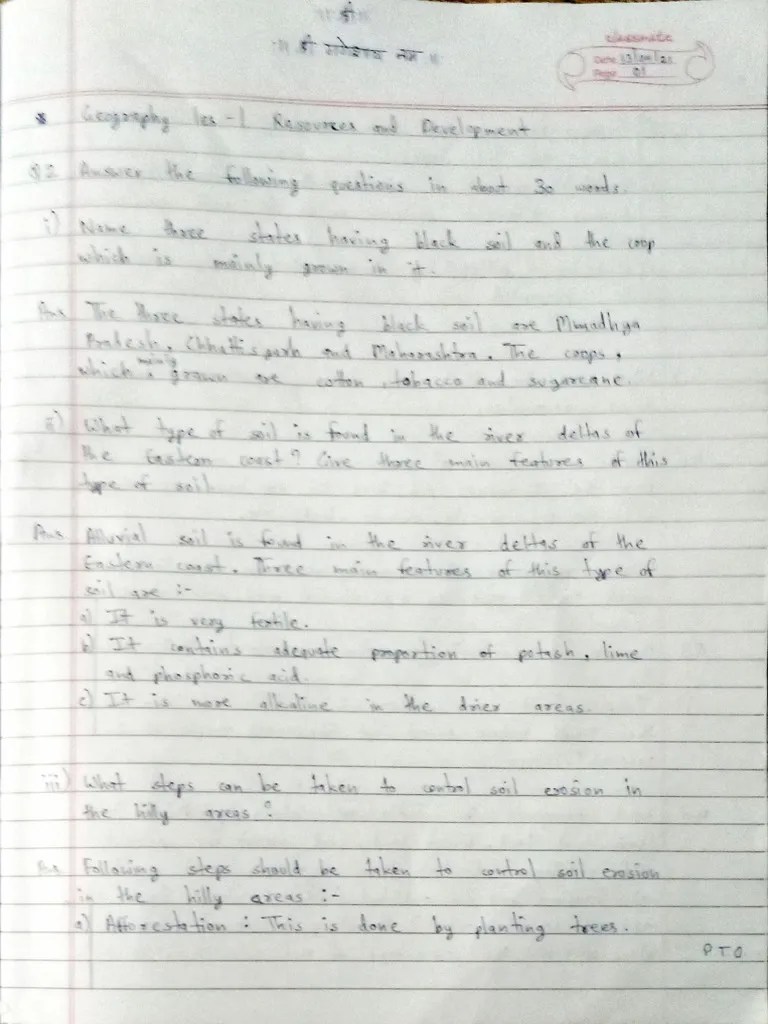 ॥ श्री ॥
॥ श्री गणेशाय नमः ॥
classmate
Date
Page 01
* Geography les-1 Resources and Development
Q2 Answer the following questions in about 30 words.
i) Name three states having black soil and the coop
which is mainly grown in it.
Ans The three states having black soil are Mmadhya
Pradesh, Chhattisgarh and Maharashtra. The coops,
which mainly grown are cotton, tobacco and sugarcane.
ii) What type of soil is found in the river deltas of
the Eastern coast? Give three main features of this
type of soil.
Ans Alluvial soil is found in the river deltas of the
Eastern coast. Three main features of this type of
soil are :-
a) It is very fertile.
b) It contains adequate proportion of potash, lime
and phosphoric acid.
c) It is more alkaline in the drier areas.
iii) What steps can be taken to control soil erosion in
the hilly areas?
Ans Following steps should be taken to control soil erosion
in the hilly areas :-
a) Afforestation : This is done by planting trees.
P T O